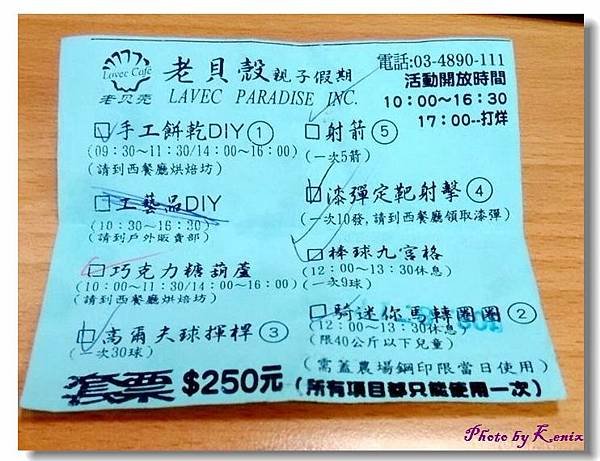 Lavec Café
老贝壳
老貝殼 親子假期
LAVEC PARADISE INC.
電話:03-4890-111
活動開放時間
10:00~16:30
17:00--打烊
手工餅乾DIY ①
(09:30~11:30/14:00~16:00)
(請到西餐廳烘焙坊)
工藝品DIY
(10:30~16:30)
(請到戶外販賣部)
巧克力糖葫蘆
(10:00~11:30/14:00~16:00)
(請到西餐廳烘焙坊)
高爾夫球揮桿 ③
(一次30球)
射箭 ⑤
(一次5箭)
漆彈定靶射擊 ④
(一次10發,請到西餐廳領取漆彈)
棒球九宮格
(12:00~13:30休息)
(一次9球)
騎迷你馬轉圈圈 ②
(12:00~13:30休息)
(限40公斤以下兒童)
(需蓋農場鋼印限當日使用)
套票 $250元 (所有項目都只能使用一次)
Photo by Kenix